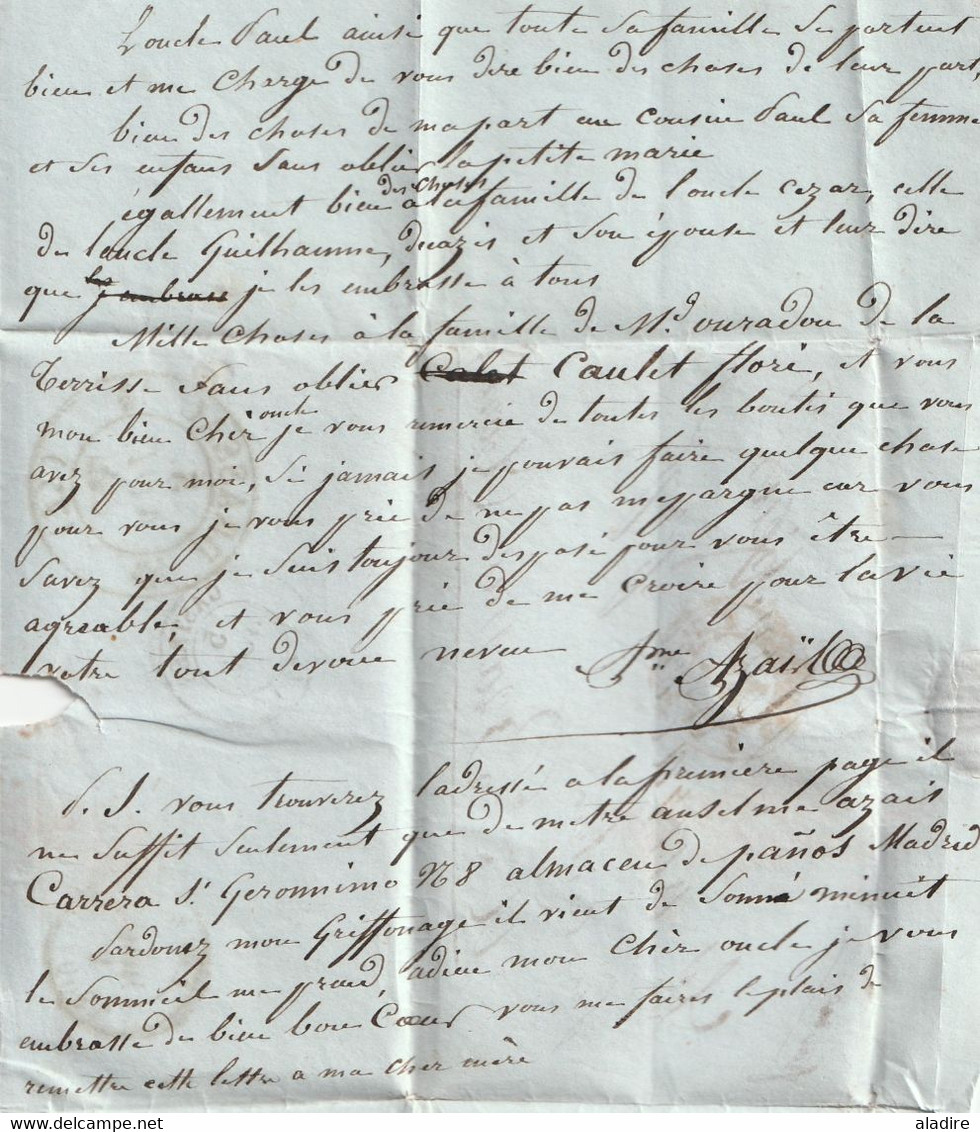 L'oncle Paul ainsi que toute sa famille se portent
bien et me charge de vous dire bien des choses de leur part,
bien des choses de ma part au cousin Paul sa femme
et ses enfans sans oblier la petite marie
égallement bien des choses a la famille de l'oncle cezar, celle
de loncle Guilhaume, deazis et son épouse et leur dire
que je les embrasse à tous
Mille choses à la famille de Md ouradou de la
Terrisse sans oblier Caulet flori, et vous
mon bien Cher oncle je vous remercie de toutes les bontés que vous
avez pour moi, si jamais je pouvais faire quelque chose
pour vous je vous prie de ne pas mepargne car vous
savez que je suis toujour desposé pour vous être
agreable, et vous prie de me croire pour la vie
votre tout devoue neveu Ame Azaïs
P.S. vous trouverez ladressé a la première page il
ne suffit seulement que de metre anselme azais
Carrera St Geronnimo N8 almacen de paños Madrid
Pardonez mon Griffonage il vient de sonné minuit
le sommeil me prend, adieu mon chèr oncle je vous
embrasse de bien bon Coeur vous me faires le plais de
remettre cette lettre a ma cher mère
aladire